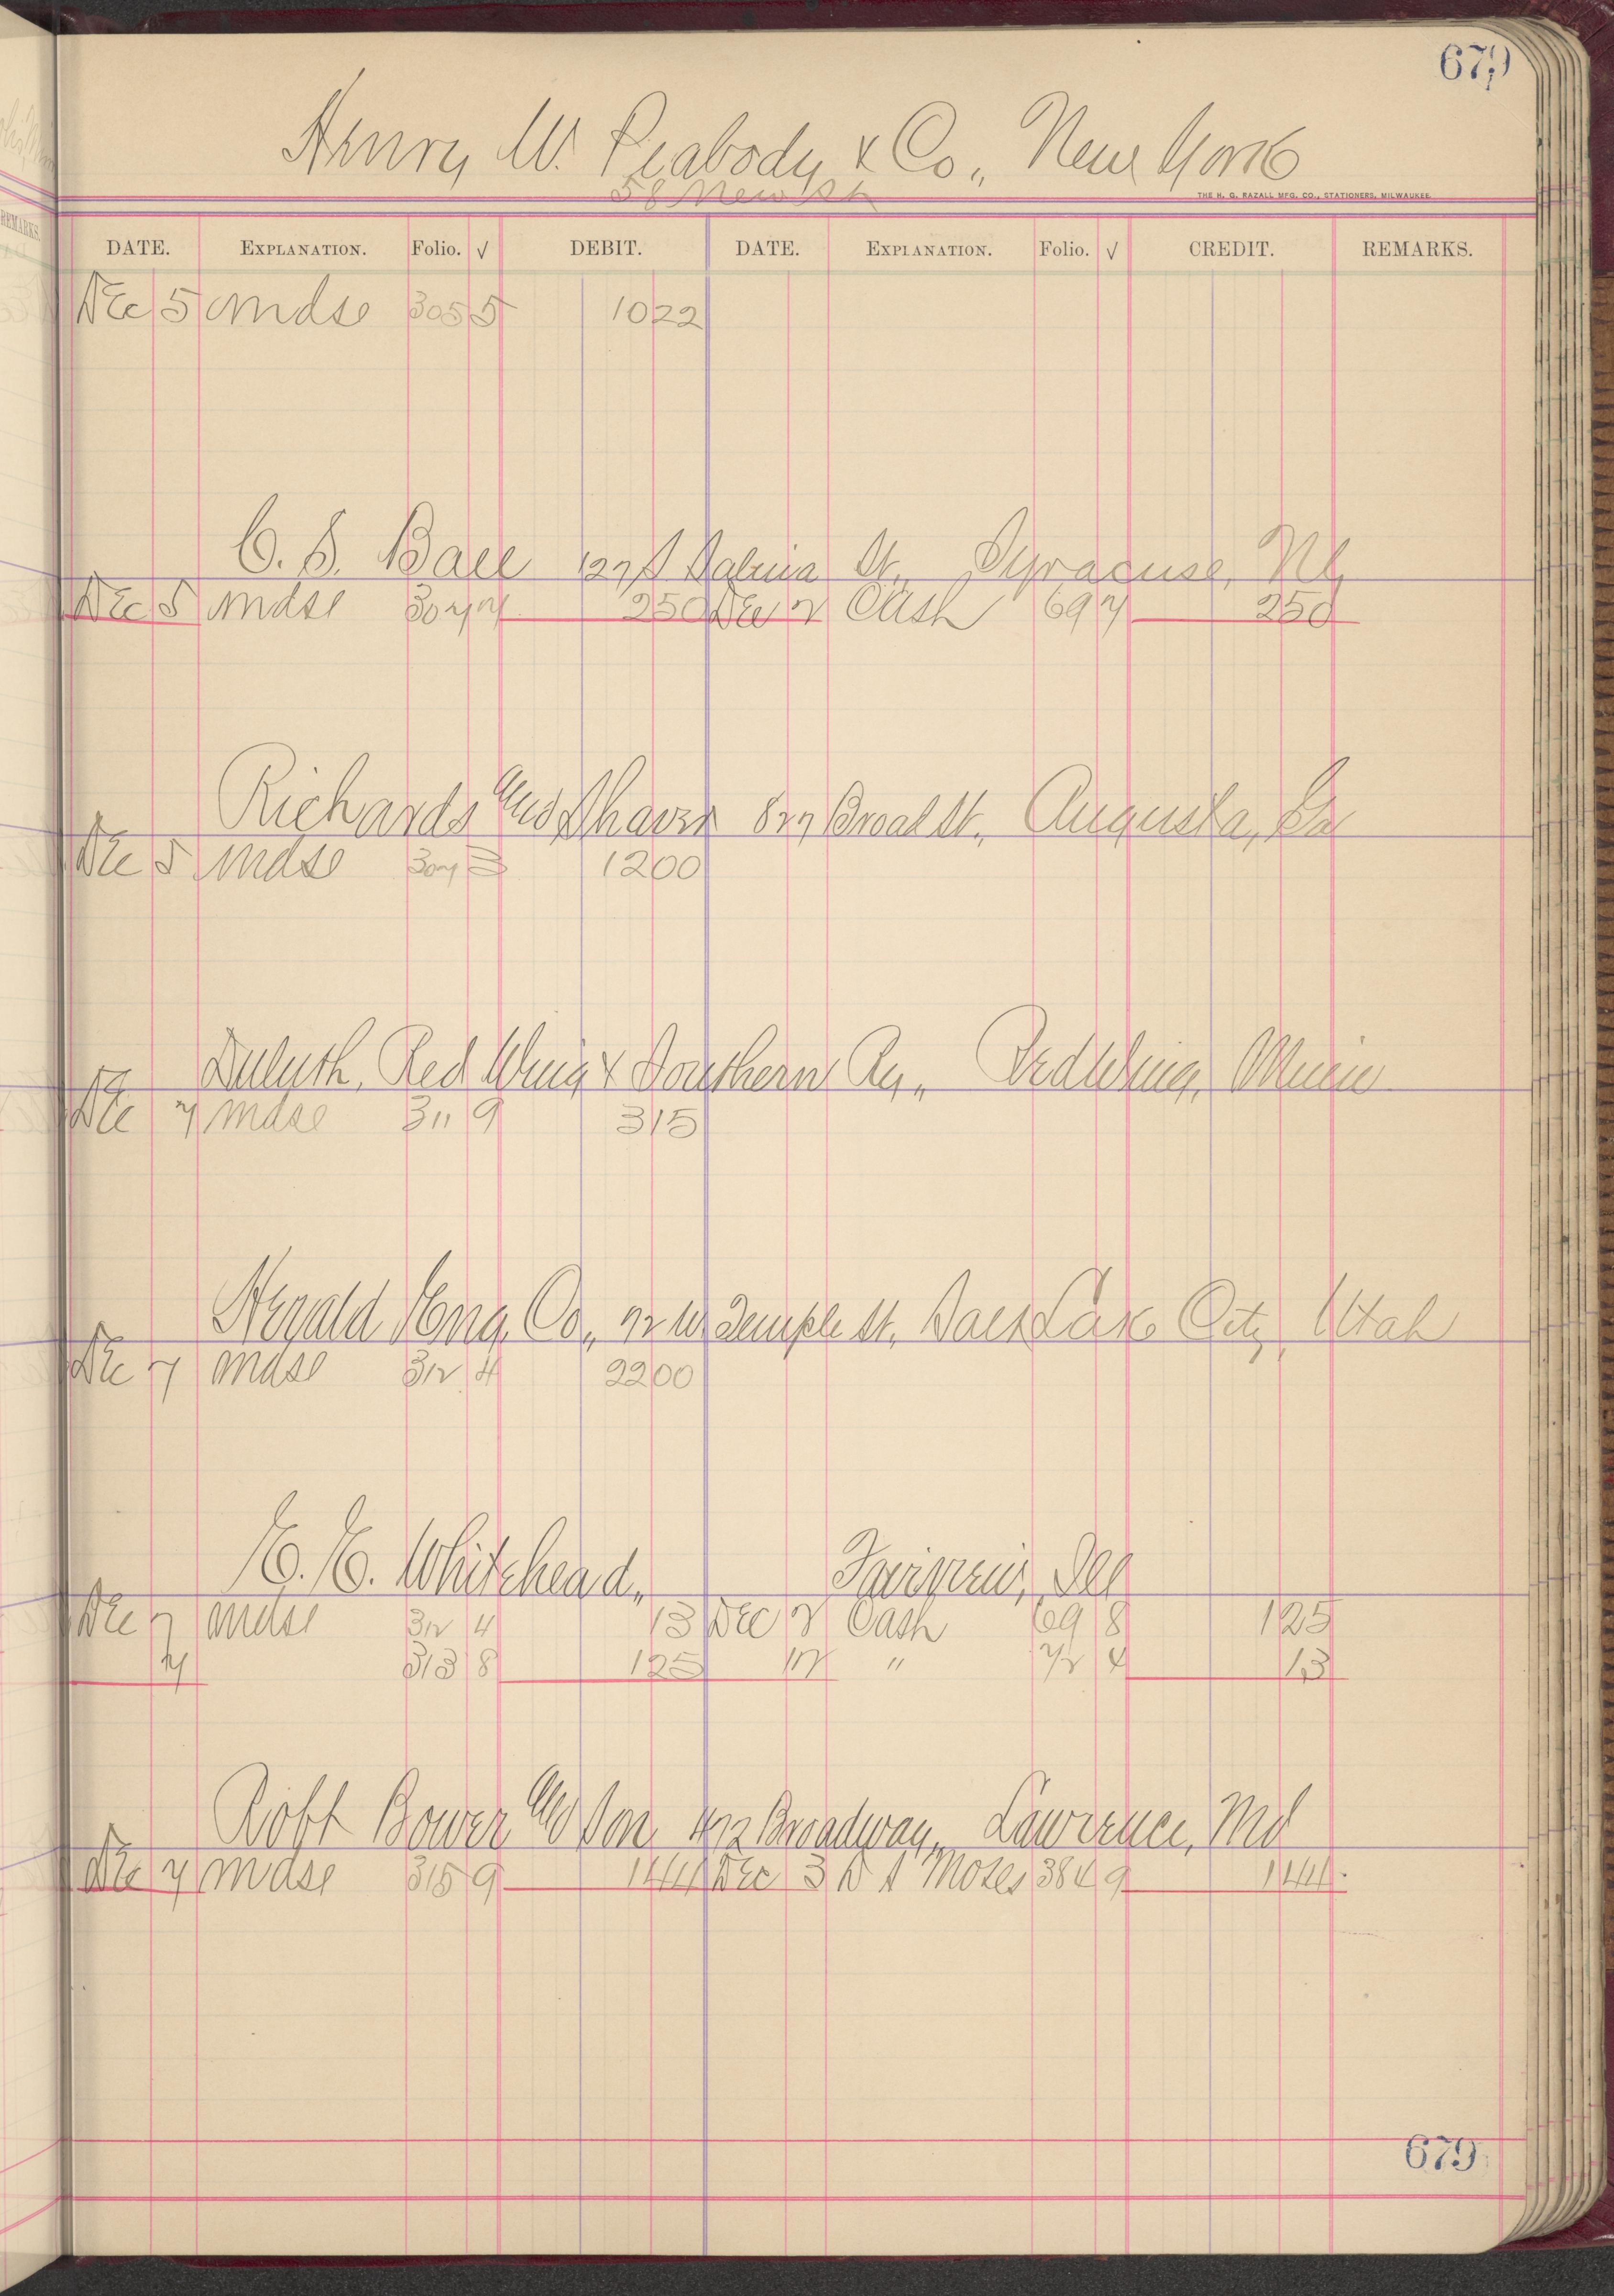 679
Henry W. Peabody & Co., New York
58 New St
THE H. G. RAZALL MFG. CO., STATIONERS, MILWAUKEE.
REMARKS.
DATE. EXPLANATION. Folio. √ DEBIT. DATE. EXPLANATION. Folio. √ CREDIT. REMARKS.
Dec 5 Mdse 305 5 1022
C. S. Ball 127 S Salina St., Syracuse, NY
Dec 5 Mdse 307 7 250 Dec 2 Cash 69 7 250
Richards and Shaver 827 Broad St. Augusta, Ga
Dec 5 Mdse 307 3 1200
Duluth, Red Wing & Southern Ry., Red Wing, Minn
Dec 7 Mdse 311 9 315
Herald Eng. Co., 72 W. Temple St. Salt Lake City, Utah
Dec 7 Mdse 312 4 2200
E. E. Whitehead, Fairview, Ill
Dec 7 Mdse 312 4 13 Dec 2 Cash 69 8 125
7 313 8 125 12 " 72 4 13
Robt Bower and Son 472 Broadway, Lawrence, Md
Dec 7 Mdse 315 9 144 Dec 3 D S Moses 384 9 144
679